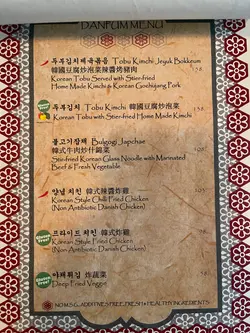 DANPUM MENU
두부김치제육볶음 Tobu Kimchi Jeyuk Bokkeum
韓國豆腐炒泡菜辣醬烤豬肉
Korean Tobu Served with Stir-fried
Home Made Kimchi & Korean Gochujang Pork
두부김치 Tobu Kimchi 韓國豆腐炒泡菜
Korean Tobu with Stir-fried Home Made Kimchi
불고기잡채 Bulgogi Japchae
韓式牛肉炒什錦菜
Stir-fried Korean Glass Noodle with Marinated
Beef & Fresh Vegetable
양념 치킨 韓式辣炸雞
Korean Style Chili Fried Chicken
(Non Antibiotic Danish Chicken)
프라이드 치킨 韓式炸雞
Korean Style Fried Chicken
(Non Antibiotic Danish Chicken)
야채튀김 炸蔬菜
Deep Fried Veggie
NO M.S.G, ADDITIVES FREE, FRESH & HEALTHY INGREDIENTS